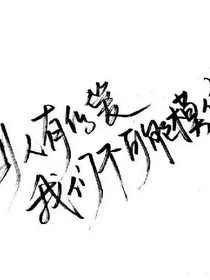 别人有的爱
我们不可能模仿